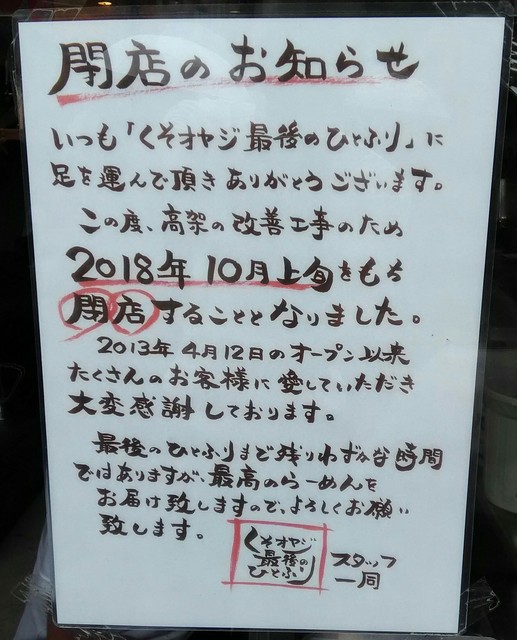 閉店のお知らせ
いつも「くそオヤジ最後のひとふり」に
足を運んで頂きありがとうございます。
この度、高架の改善工事のため
2018年10月上旬をもち
閉店することとなりました。
2013年4月12日のオープン以来
たくさんのお客様に愛していただき
大変感謝しております。
最後のひとふりまで残りわずかな時間
ではありますが、最高のらーめんを
お届け致しますので、よろしくお願い
致します。
くそオヤジ
最後の
ひとふり
スタッフ
一同